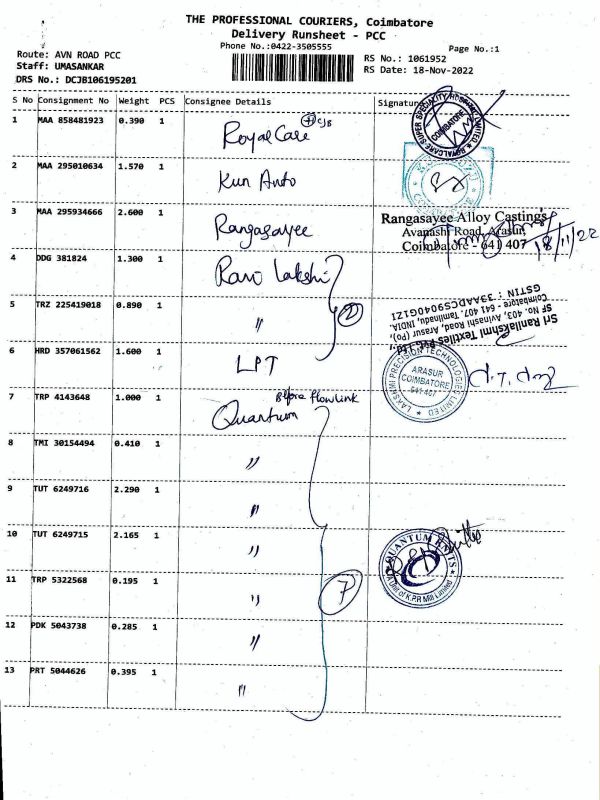 THE PROFESSIONAL COURIERS, Coimbatore
Delivery Runsheet - PCC
Phone No.:0422-3505555
Page No.:1
Route: AVN ROAD PCC
Staff: UMASANKAR
DRS No.: DCJB106195201
RS No.: 1061952
RS Date: 18-Nov-2022
S No Consignment No Weight PCS Consignee Details Signature
1 MAA 858481923 0.390 1 Royal Care CJB
2 MAA 295010634 1.570 1
3 MAA 295934666 2.600 1 Rangasayee
Rangasayee Alloy Castings
Avanashi Road, Arasur,
Coimbatore - 641 407
18/11/22
4 DDG 381824 1.300 1 Rani Lakshi
5 TRZ 225419018 0.890 1 " 2
Sri Ranilakshmi Textiles Pvt Ltd.,
SF No. 403, Avinashi Road, Arasur (Po),
Coimbatore - 641 407. Tamilnadu, INDIA.
GSTIN : 33AADCS9040G1ZI
6 HRD 357061562 1.600 1 LPT
LAKSHMI PRECISION TECHNOLOGIES LIMITED
ARASUR
COIMBATORE
641 407
7 TRP 4143648 1.000 1 Before flowlink
Quantum
8 TMI 30154494 0.410 1 "
9 TUT 6249716 2.290 1 "
10 TUT 6249715 2.165 1 "
QUANTUM KNITS
A Unit of K.P.R Mill Limited
11 TRP 5322568 0.195 1 " 7
12 PDK 5043738 0.285 1 "
13 PRT 5044626 0.395 1 "